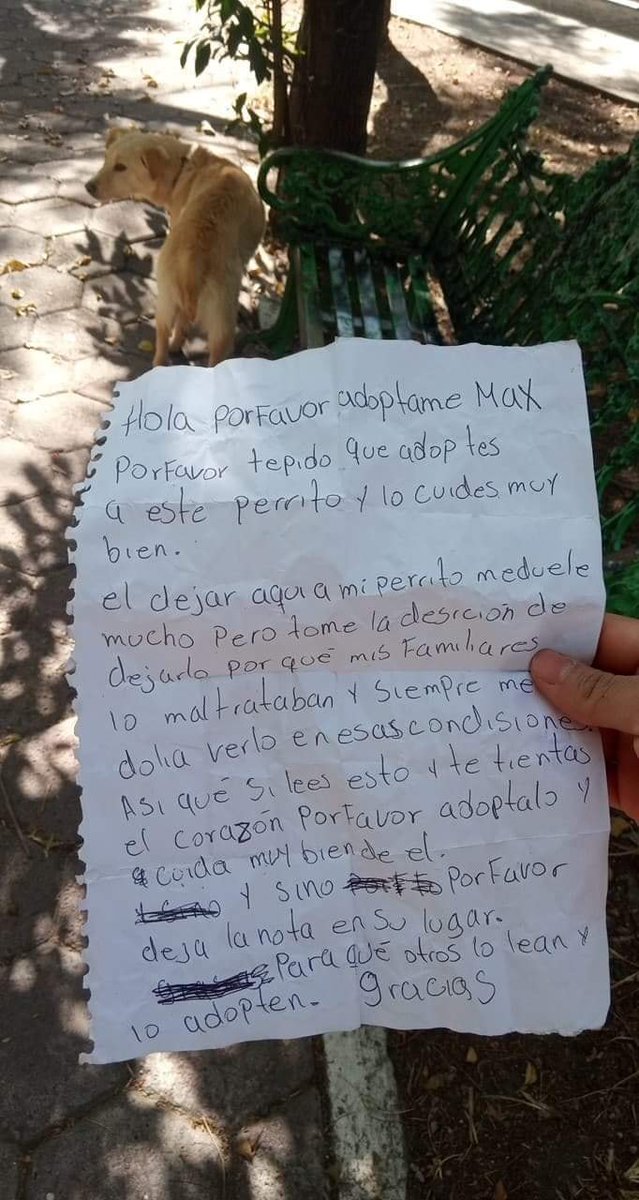 Hola PorFavor adoptame Max
PorFavor tepido que adoptes
a este perrito y lo cuides muy
bien.
el dejar aquí a mi perrito meduele
mucho Pero tome la desición de
dejarlo por qué mis Familiares
lo maltrataban y siempre me
dolia verlo en esas condisiones.
Asi qué si lees esto y te tientas
el corazón PorFavor adoptalo y
cuida muy biende el.
y sino PorFavor
deja la nota en su lugar.
Para qué otros lo lean y
lo adopten. gracias